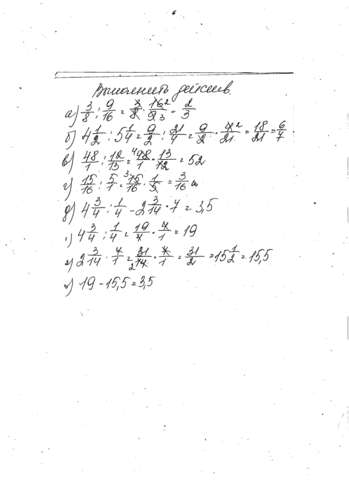 Выполнить действ.
а) 3/8 : 9/16 = 3/8 · 16²/9₃ = 2/3
б) 4 1/2 : 5 1/4 = 9/2 : 21/4 = 9/2 · 4²/21 = 18/21 = 6/7.
в) 48/1 : 12/13 = ⁴48/1 · 13/12 = 52
г) 15/16 : 5/1 = ³15/16 · 1/5 = 3/16
д) 4 3/4 : 1/4 - 2 3/14 · 7 = 3,5
1) 4 3/4 : 1/4 = 19/4 · 4/1 = 19
2 3/14 · 7/1 = 31/14₂ · 7/1 = 31/2 = 15 1/2 = 15,5
19 - 15,5 = 3,5